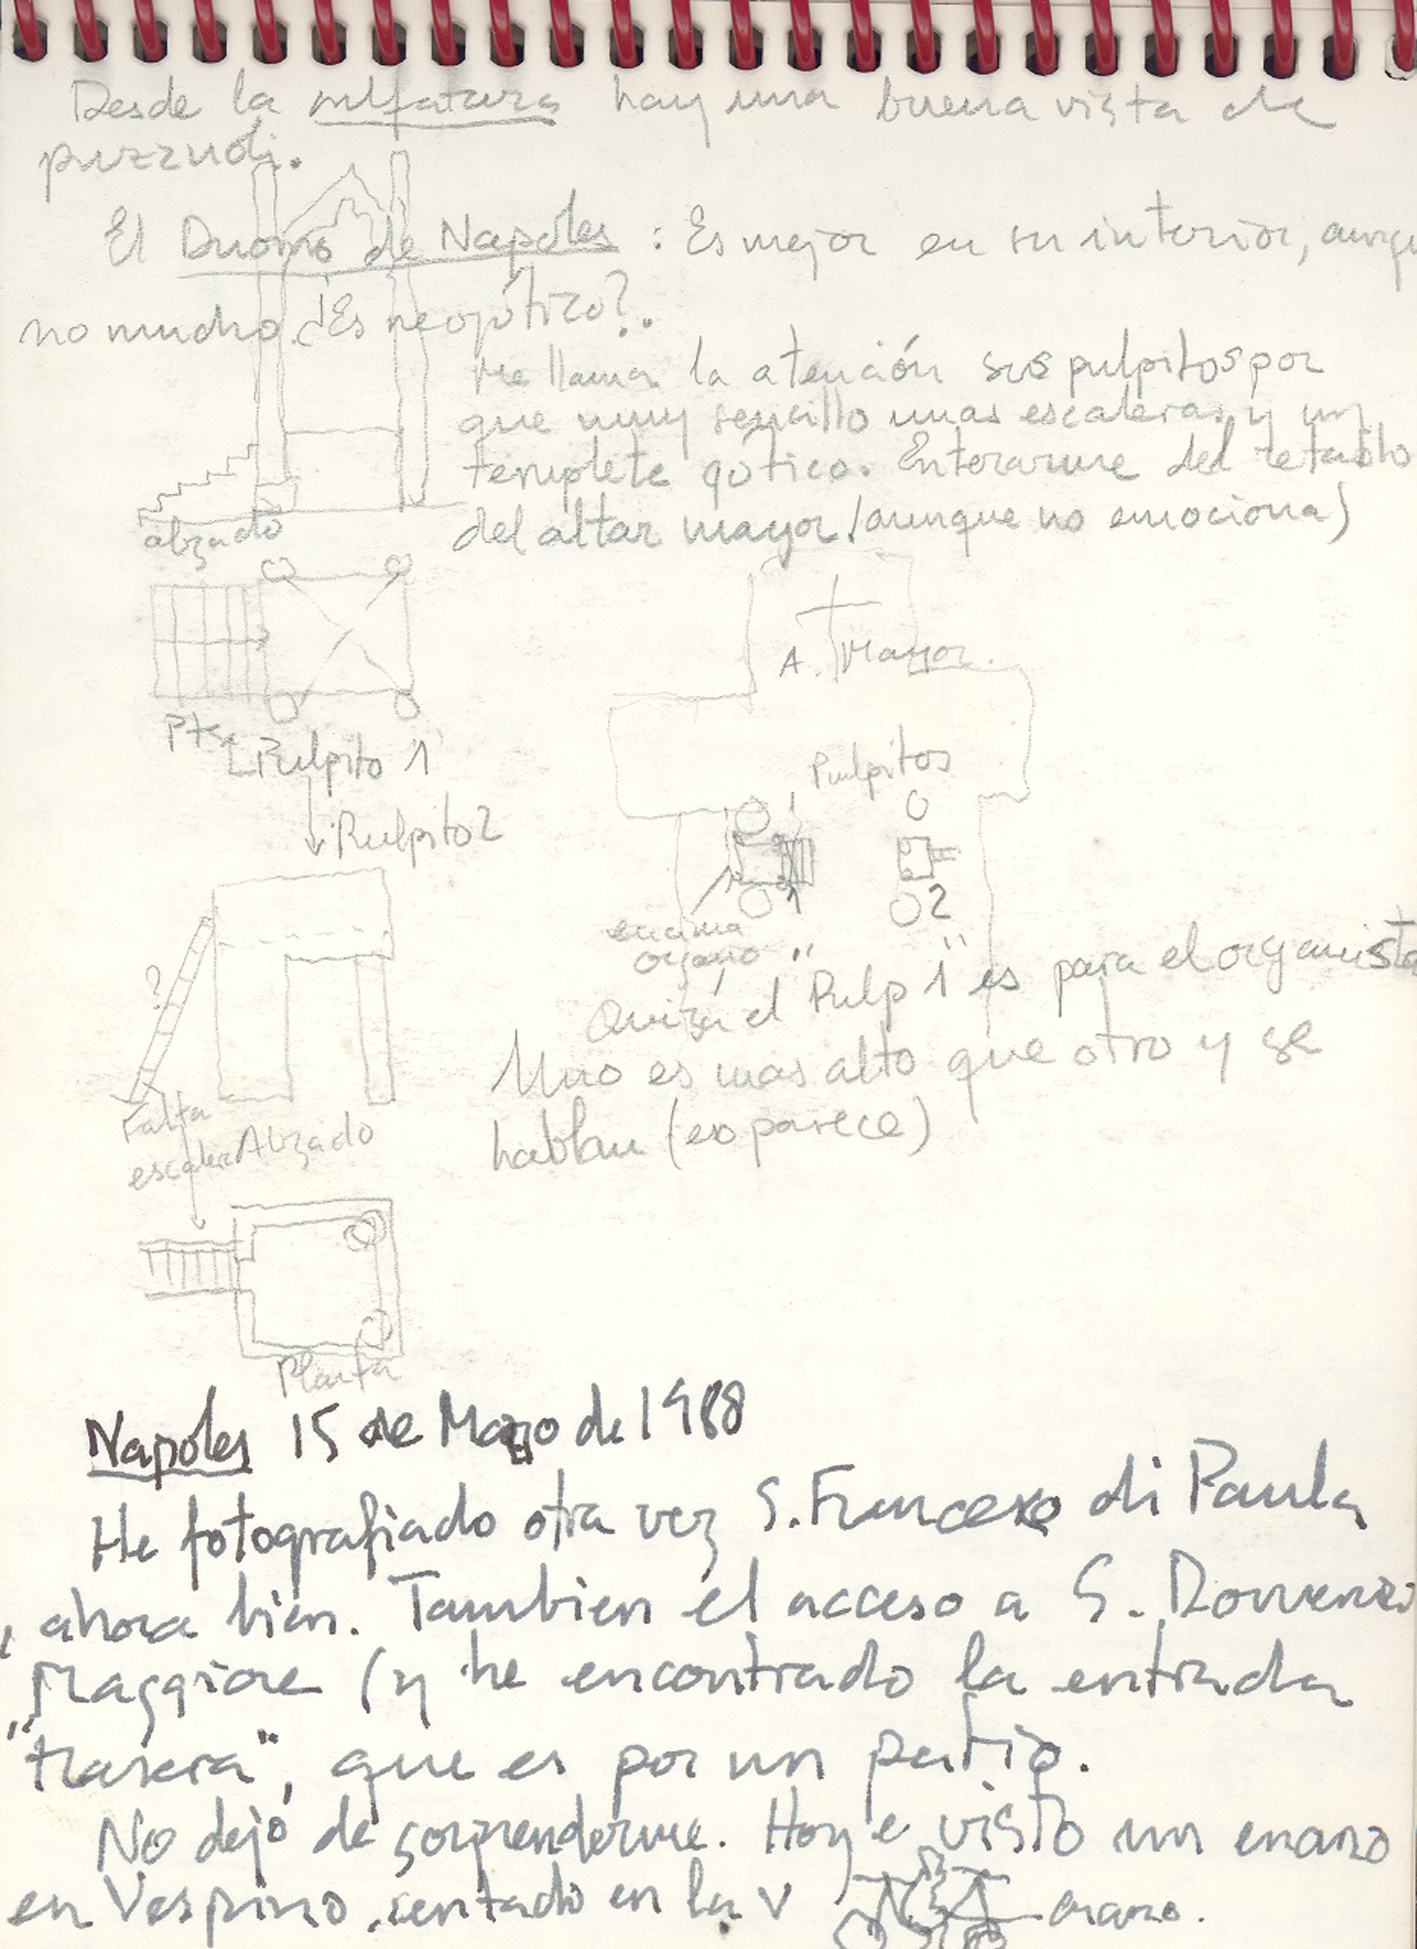 Desde la solfatara hay una buena vista de
puzzuoli.
El Duomo de Napoles : Es mejor en su interior, aunqu
no mucho. ¿Es neogótico?.
Me llama la atención sus pulpitos por
que muy sencillo unas escaleras y un
templete gótico. Enterarme del retablo
del altar mayor (aunque no emociona)
alzado
A. Mayor.
Pta
Pulpito 1
Pulpitos
Pulpito 2
1
2
encima
organo
?
Quizá el "Pulp 1" es para el organista
Uno es mas alto que otro y se
hablan (eso parece)
Falta
escalera
Alzado
Planta
Napoles 15 de Marzo de 1988
He fotografiado otra vez S. Francesco di Paula
, ahora bien. Tambien el acceso a S. Domenico
Maggiore (y he encontrado la entrada
"trasera", que es por un patio.
No dejó de sorprenderme. Hoy e visto un enano
en Vespino, sentado en la V
enano.